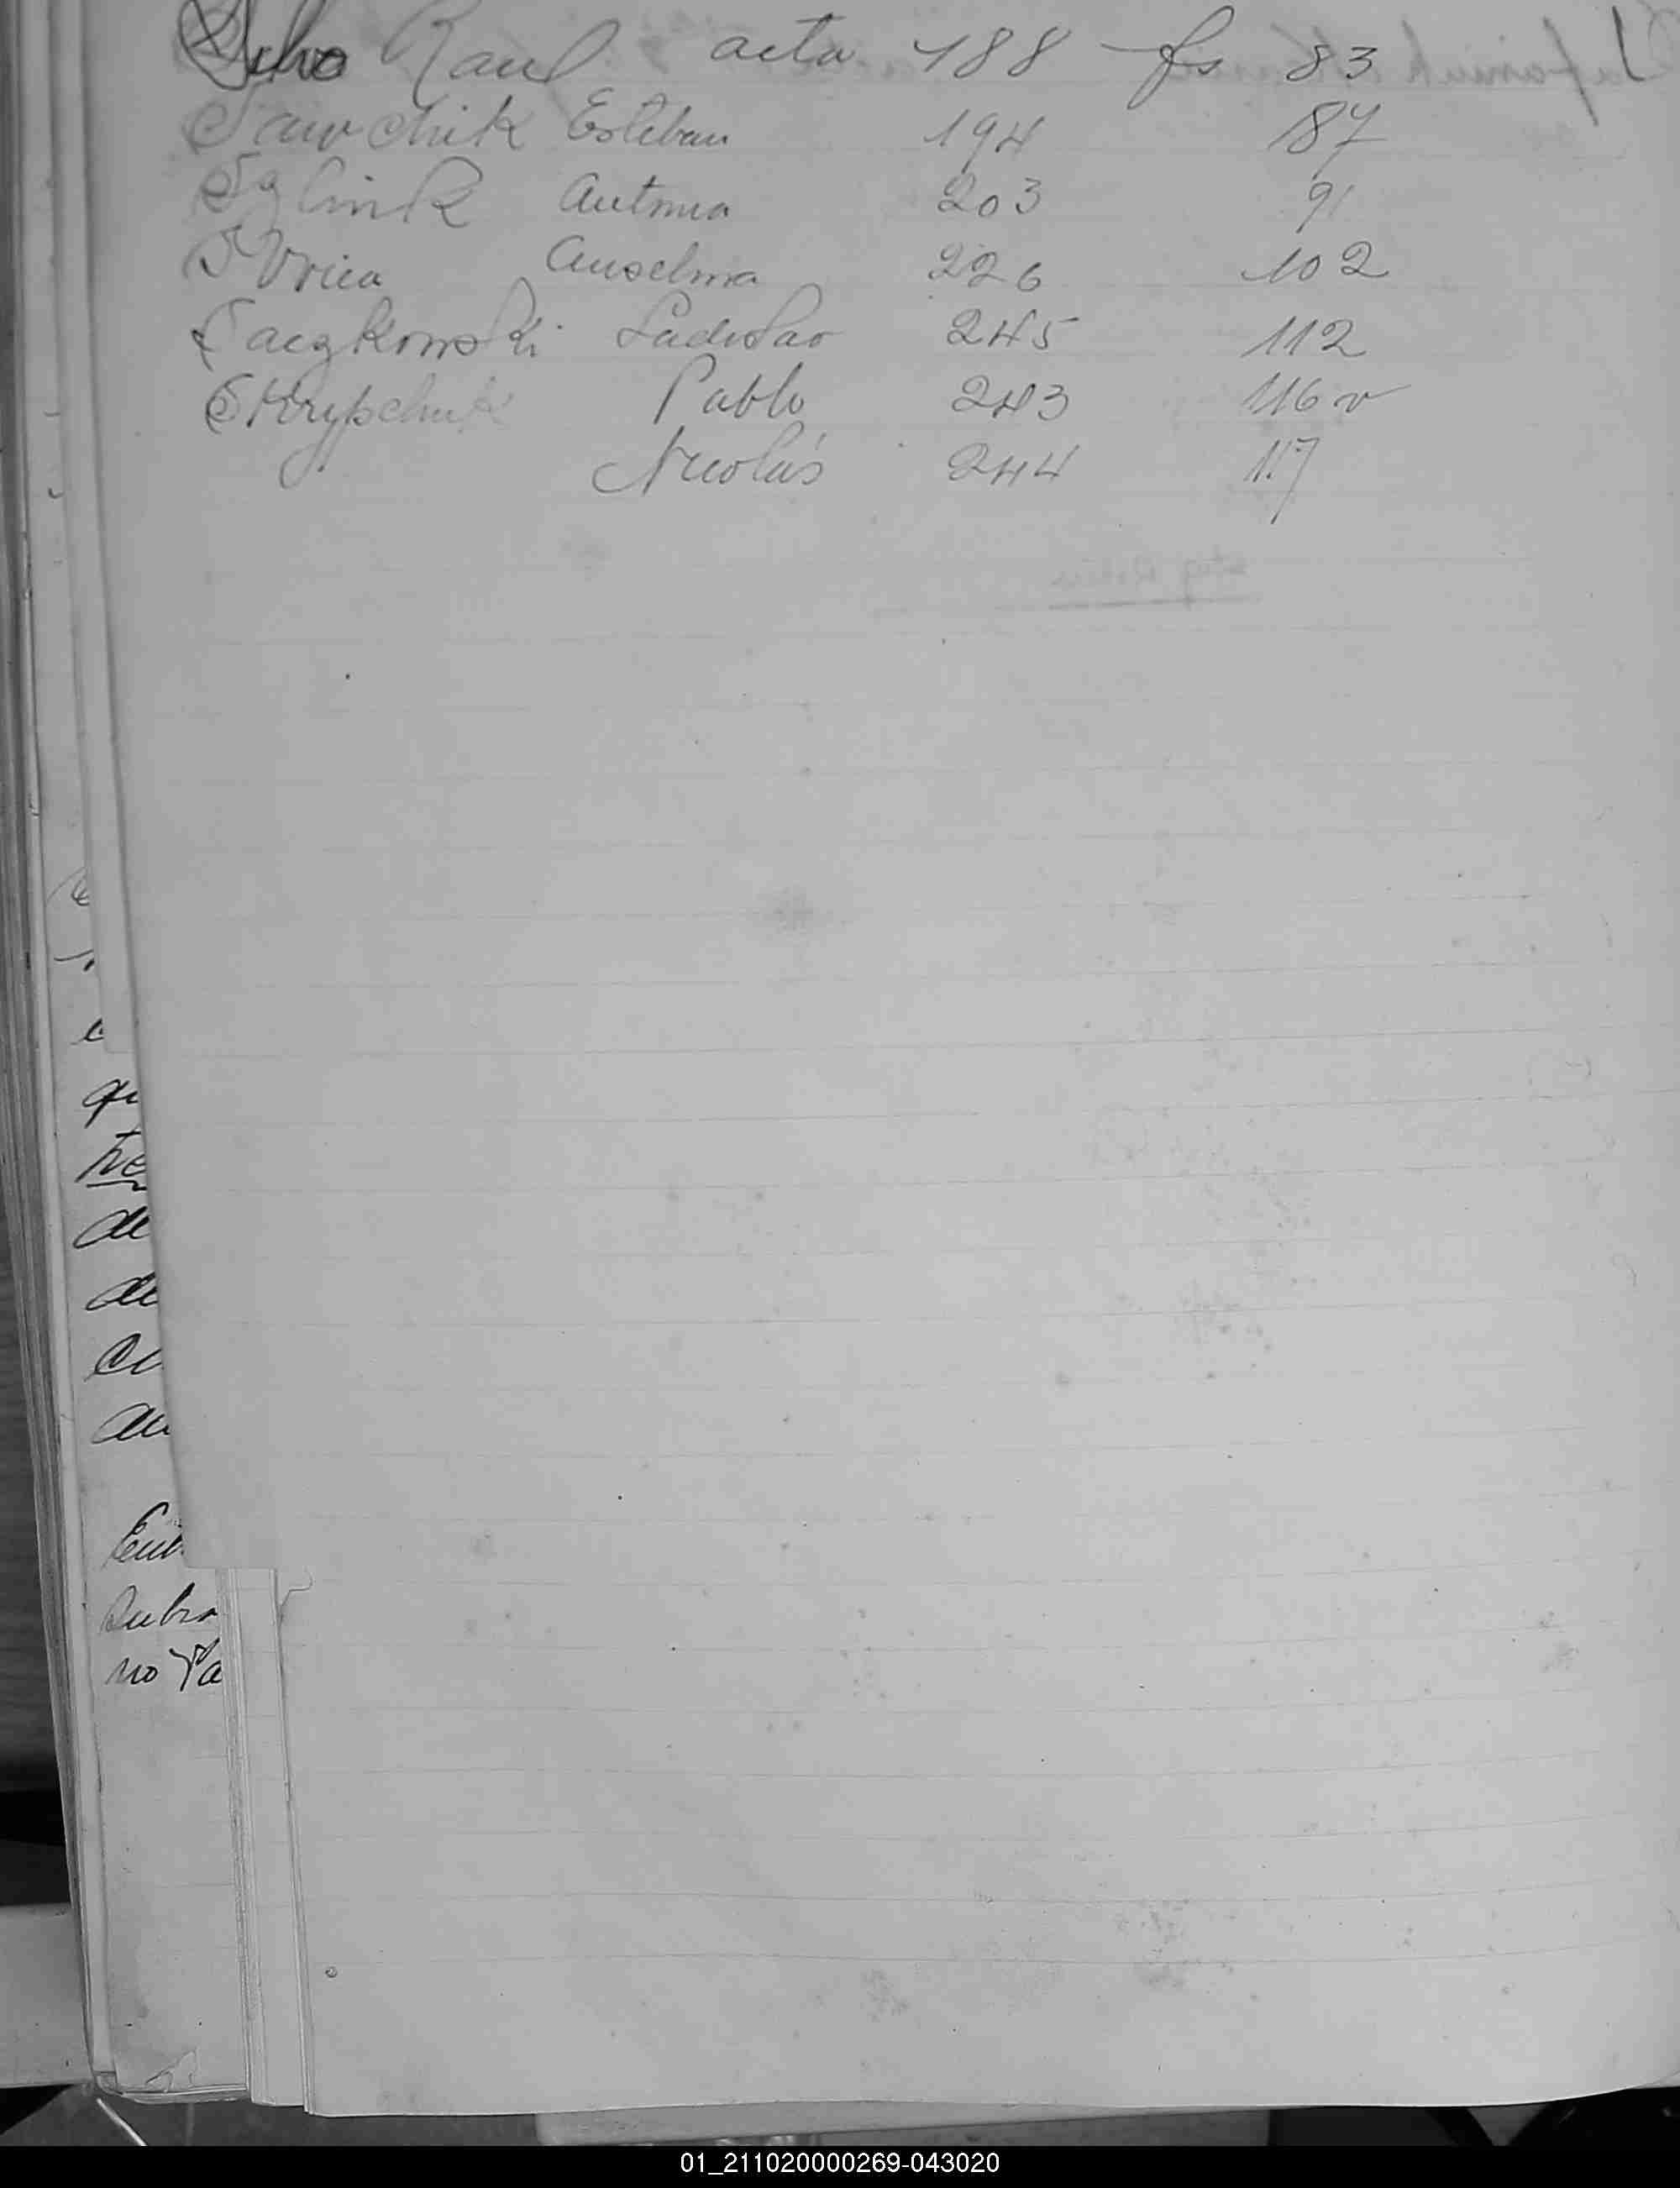 Silvo Raul acta 188 fs 83
Sawchik Esteban 194 87
Antonia 203 91
Anselma 226 102
Saczkowski Ladislao 245 112
Skrypchuk Pablo 243 116 v
Nicolás 244 117
qu
de
de
au
no Pa
01_211020000269-043020